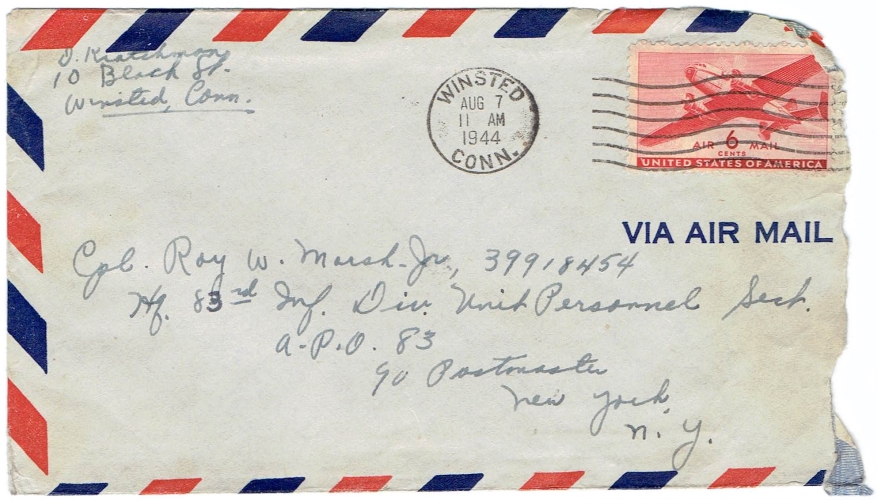 D. Kratchman
10 Black St.
Winsted, Conn.
WINSTED
AUG 7
11 AM
1944
CONN.
AIR 6 MAIL
CENTS
UNITED STATES OF AMERICA
VIA AIR MAIL
Cpl. Roy W. Marsh Jr, 39918454
Hq. 83rd Inf. Div. Unit Personnel Sect.
A.P.O. 83
% Postmaster
New York
N. Y.